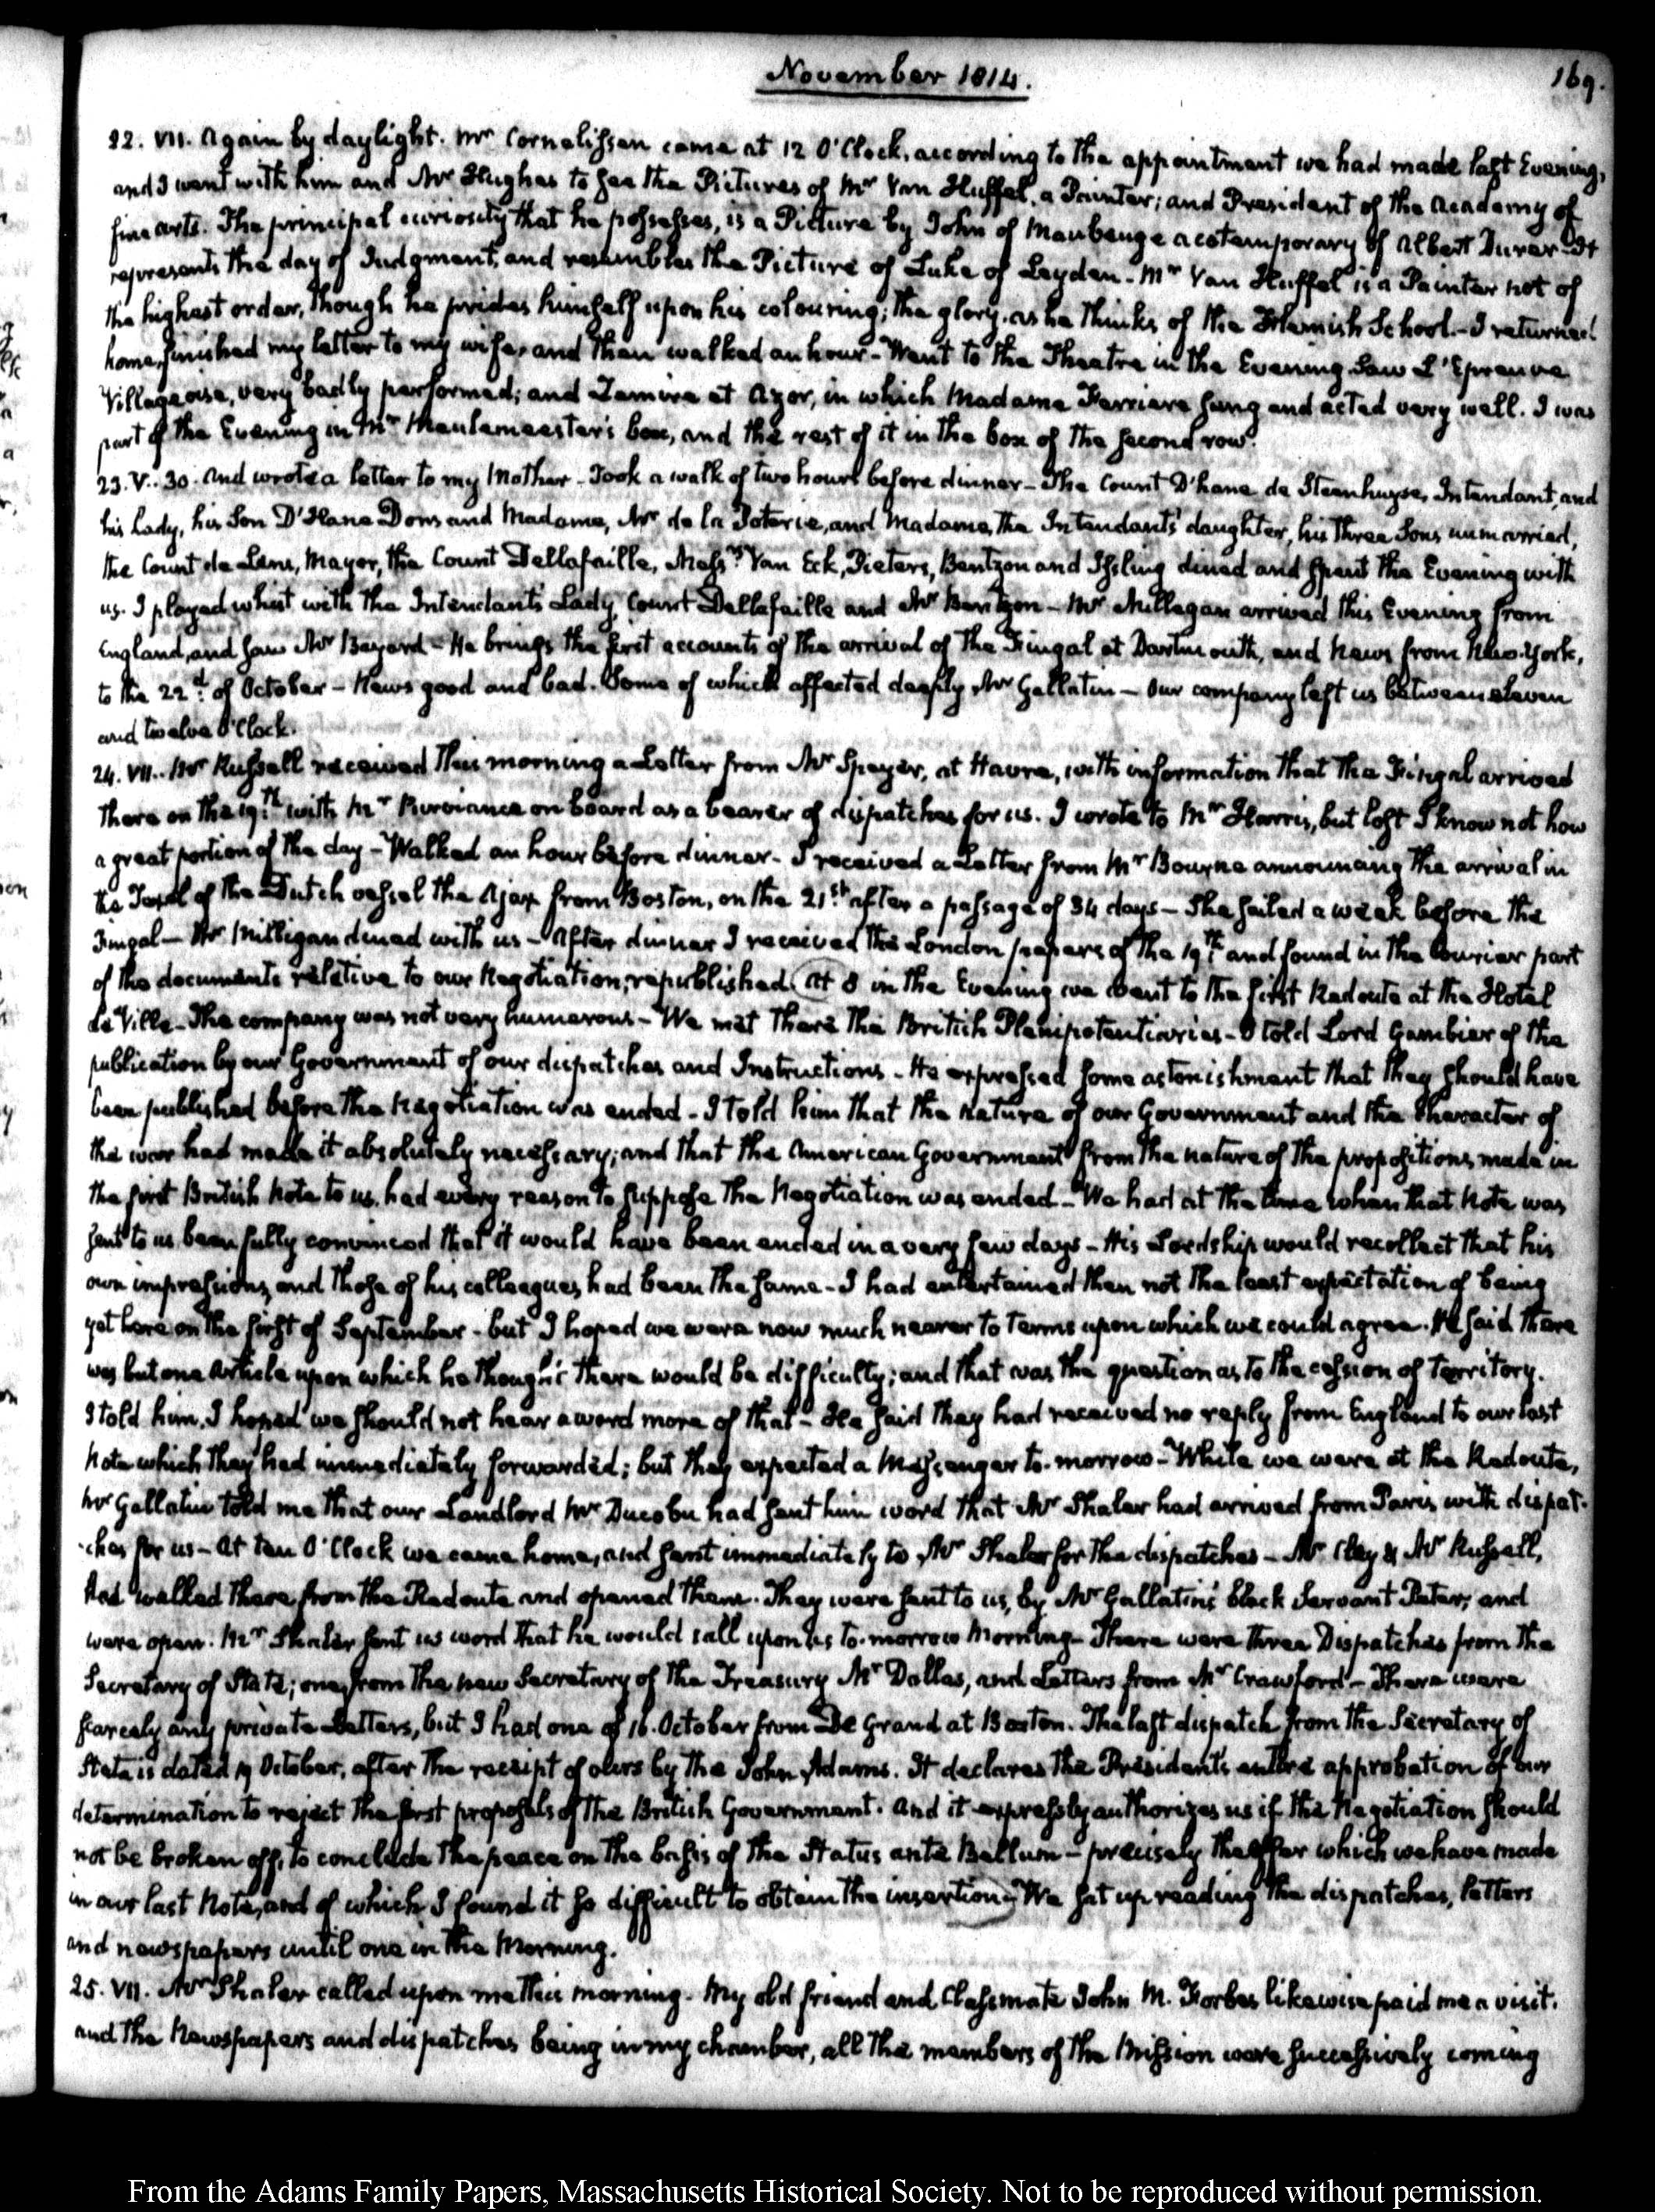 November 1814.
169.
22. VII. Again by daylight. Mr Cornelissen came at 12 O'Clock, according to the appointment we had made last Evening,
and I went with him and Mr Hughes to see the Pictures of Mr Van Huffel, a Painter; and President of the Academy of
fine arts. The principal curiosity that he possesses, is a Picture by John of Maubeuge a cotemporary of Albert Durer. It
represents the day of Judgment, and resembles the Picture of Luke of Leyden. Mr Van Huffel is a Painter not of
the highest order, though he prides himself upon his colouring; the glory, as he thinks, of the Flemish School.- I returned
home, finished my letter to my wife, and then walked an hour- Went to the Theatre in the Evening. Saw L'Epreuve
Villageoise, very badly performed; and Zemire et Azor, in which Madame Ferriere sung and acted very well. I was
part of the Evening in Mr Meulemeester's box, and the rest of it in the box of the second row.
23. V..30. And wrote a letter to my Mother- Took a walk of two hours before dinner- The Count D'hane de Steenhuyse, Intendant, and
his Lady, his Son D'Hane Dons and Madame, Mr de la Poterie, and Madame, the Intendant's daughter, his three Sons unmarried,
the Count de Lens, Mayor, the Count Dellafaille, Messrs Van Eck, Pieters, Bentzon and Isling dined and spent the Evening with
us. I played whist with the Intendant's Lady, Count Dellafaille and Mr Bentzon- Mr Millegan arrived this Evening from
England, and saw Mr Bayard- He brings the first accounts of the arrival of the Fingal at Dartmouth, and news from New-York,
to the 22d of October- News good and bad. Some of which affected deeply Mr Gallatin- Our company left us between eleven
and twelve O'Clock.
24. VII.. Mr Russell received this morning a Letter from Mr Speyer, at Havre, with information that the Fingal arrived
there on the 19th with Mr Purviance on board as a bearer of dispatches for us. I wrote to Mr Harris, but lost I know not how
a great portion of the day- Walked an hour before dinner- I received a Letter from Mr Bourne announcing the arrival in
the Texel of the Dutch vessel the Ajax from Boston, on the 21st after a passage of 34 days- She sailed a week before the
Fingal- Mr Milligan dined with us- After dinner I received the London papers of the 19th and found in the Courier part
of the documents relative to our Negotiation, republished. At 8 in the Evening we went to the first Redoute at the Hotel
de Ville- The company was not very numerous- We met there the British Plenipotentiaries- I told Lord Gambier of the
publication by our Government of our dispatches and Instructions- He expressed some astonishment that they should have
been published before the Negotiation was ended- I told him that the nature of our Government and the character of
the war had made it absolutely necessary; and that the American Government from the nature of the propositions made in
the first British Note to us, had every reason to suppose the Negotiation was ended- We had at the time when that Note was
sent to us been fully convinced that it would have been ended in a very few days- His Lordship would recollect that his
own impressions, and those of his colleagues, had been the same- I had entertained then not the least expectation of being
yet here on the first of September- but I hoped we were now much nearer to terms upon which we could agree. He said there
was but one Article upon which he thought there would be difficulty; and that was the question as to the cession of territory.
I told him, I hoped we should not hear a word more of that- He said they had received no reply from England to our last
Note which they had immediately forwarded; but they expected a Messenger to-morrow- While we were at the Redoute,
Mr Gallatin told me that our Landlord Mr Ducobu had sent him word that Mr Shaler had arrived from Paris with dispat-
-ches for us- At ten O'Clock we came home, and sent immediately to Mr Shaler for the dispatches- Mr Clay & Mr Russell,
had walked there from the Redoute and opened them. They were sent to us, by Mr Gallatin's black Servant Peter; and
were open. Mr Shaler sent us word that he would call upon us to-morrow Morning- There were three Dispatches from the
Secretary of State; one, from the new Secretary of the Treasury Mr Dallas, and Letters from Mr Crawford- There were
scarcely any private Letters, but I had one of 16. October from De Grand at Boston. The last dispatch from the Secretary of
State is dated 19 October, after the receipt of ours by the John Adams. It declares the President's entire approbation of our
determination to reject the first proposals of the British Government. And it expressly authorizes us if the Negotiation should
not be broken off, to conclude the peace on the basis of the Status ante Bellum- precisely the offer which we have made
in our last Note, and of which I found it so difficult to obtain the insertion- We sat up reading the dispatches, letters
and newspapers until one in the Morning.
25. VII. Mr Shaler called upon me this morning- My old friend and Classmate John M. Forbes likewise paid me a visit.
and the Newspapers and dispatches being in my chamber, all the members of the Mission were successively coming
From the Adams Family Papers, Massachusetts Historical Society. Not to be reproduced without permission.